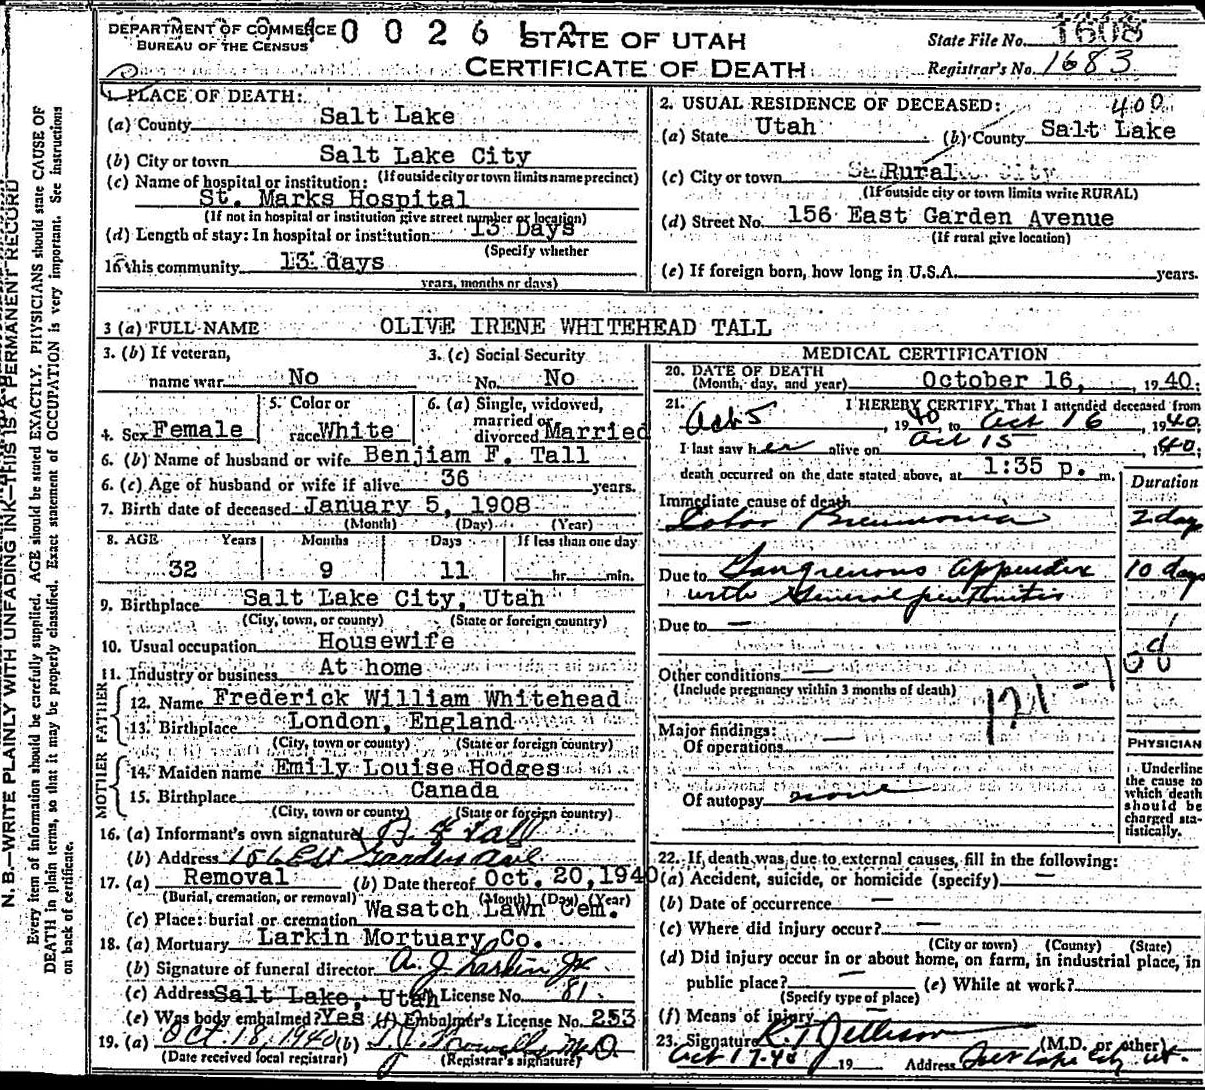 DEPARTMENT OF COMMERCE
BUREAU OF THE CENSUS
STATE OF UTAH
CERTIFICATE OF DEATH
State File No. 1608
Registrar's No. 1683
1. PLACE OF DEATH:
(a) County Salt Lake
(b) City or town Salt Lake City
(If outside city or town limits name precinct)
(c) Name of hospital or institution:
St. Marks Hospital
(If not in hospital or institution give street number or location)
(d) Length of stay: In hospital or institution 13 Days
(Specify whether
In this community 13 days
years, months or days)
2. USUAL RESIDENCE OF DECEASED: 400
(a) State Utah (b) County Salt Lake
(c) City or town Rural
(If outside city or town limits write RURAL)
(d) Street No. 156 East Garden Avenue
(If rural give location)
(e) If foreign born, how long in U.S.A. years.
3 (a) FULL NAME OLIVE IRENE WHITEHEAD TALL
3. (b) If veteran, name war No
3. (c) Social Security No. No
4. Sex Female
5. Color or race White
6. (a) Single, widowed, married or divorced Married
6. (b) Name of husband or wife Benjiam F. Tall
6. (c) Age of husband or wife if alive 36 years.
7. Birth date of deceased January 5, 1908
(Month) (Day) (Year)
8. AGE Years Months Days If less than one day
32 9 11 hr. min.
9. Birthplace Salt Lake City, Utah
(City, town, or county) (State or foreign country)
10. Usual occupation Housewife
11. Industry or business At home
FATHER
12. Name Frederick William Whitehead
13. Birthplace London, England
(City, town or county) (State or foreign country)
MOTHER
14. Maiden name Emily Louise Hodges
15. Birthplace Canada
(City, town or county) (State or foreign country)
16. (a) Informant's own signature B F Tall
(b) Address 156 East Garden Ave
17. (a) Removal (b) Date thereof Oct. 20, 1940
(Burial, cremation, or removal) (Month) (Day) (Year)
(c) Place: burial or cremation Wasatch Lawn Cem.
18. (a) Mortuary Larkin Mortuary Co.
(b) Signature of funeral director A. J. Larkin Jr
(c) Address Salt Lake, Utah License No. 81
(e) Was body embalmed? Yes (f) Embalmer's License No. 253
19. (a) Oct 18, 1940 (b)
(Date received local registrar) (Registrar's signature)
MEDICAL CERTIFICATION
20. DATE OF DEATH
(Month, day, and year) October 16, , 1940;
21. I HEREBY CERTIFY, That I attended deceased from
Oct 5 , 1940 to Oct 16 , 1940;
I last saw her alive on Oct 15 , 1940;
death occurred on the date stated above, at 1:35 p. m.
Duration
Immediate cause of death
Lobar Pneumonia 2 day
Due to Gangrenous Appendix 10 days
with General peritonitis
Due to —
Other conditions —
(Include pregnancy within 3 months of death)
121-1
Major findings:
Of operations —
Of autopsy none
PHYSICIAN
Underline
the cause to
which death
should be
charged sta-
tistically.
22. If death was due to external causes, fill in the following:
(a) Accident, suicide, or homicide (specify) —
(b) Date of occurrence —
(c) Where did injury occur? —
(City or town) (County) (State)
(d) Did injury occur in or about home, on farm, in industrial place, in
public place? — (e) While at work?
(Specify type of place)
(f) Means of injury
23. Signature (M.D. or other)
Oct 17-40 19 Address Salt Lake City Ut.
N. B.—WRITE PLAINLY WITH UNFADING INK—THIS IS A PERMANENT RECORD
Every item of information should be carefully supplied. AGE should be stated EXACTLY. PHYSICIANS should state CAUSE OF
DEATH in plain terms, so that it may be properly classified. Exact statement of OCCUPATION is very important. See instructions
on back of certificate.